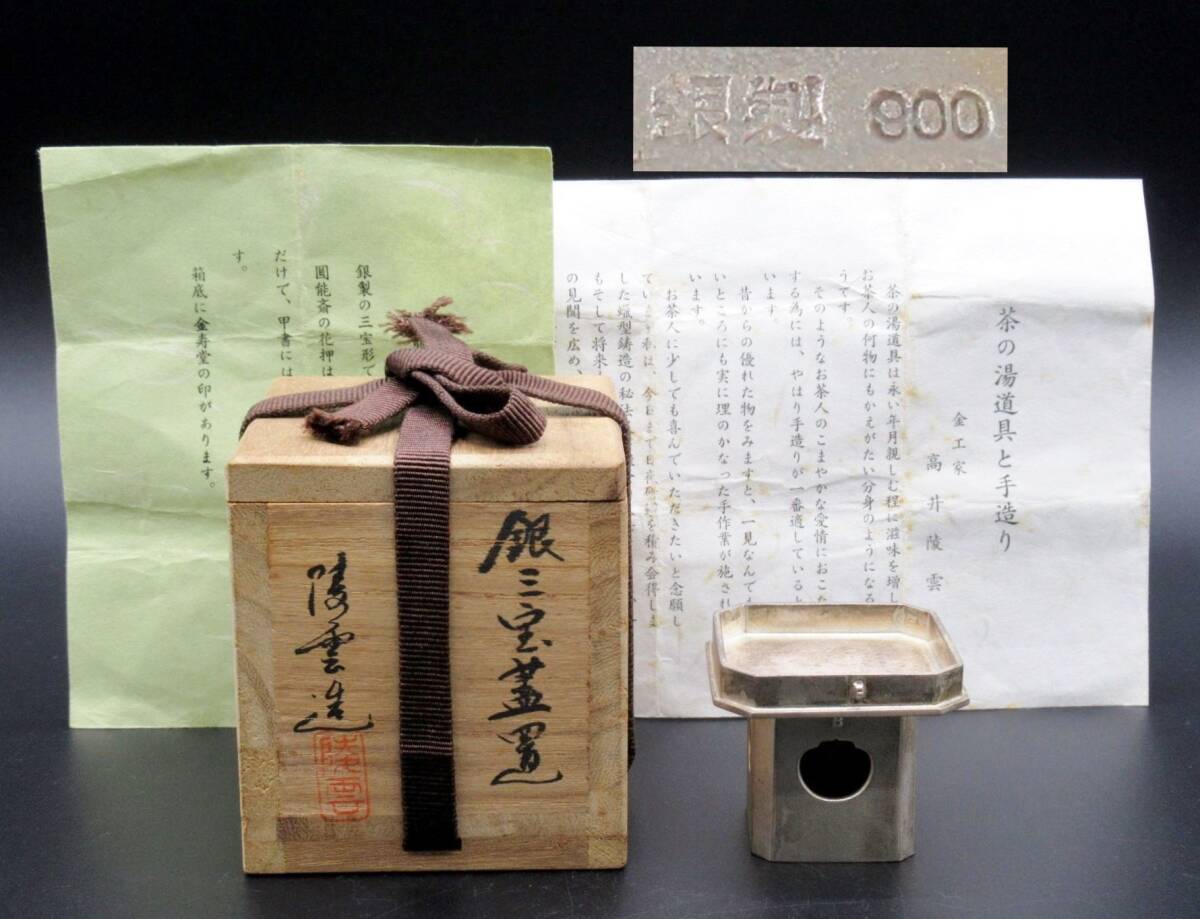 銀製 900
茶の湯道具と手造り
金工家
高井陵雲
茶の湯道具は永い年月親しむ程に滋味を増し
お茶人の何物にもかえがたい分身のようになる
うです。
そのようなお茶人のこまやかな愛情におこた
する為には、やはり手造りが一番適していると
います。
昔からの優れた物をみますと、一見なんでも
いところにも実に理のかなった手作業が施され
います。
お茶人に少しでも喜んでいただきたいと念願し
した蠟型鋳造の秘法
もそして将来
の見聞を広め、
銀製の三宝形で
圓能斎の花押は
だけで、甲書には
す。
箱底に金寿堂の印があります。
銀三宝蓋置
陵雲造
陵雲